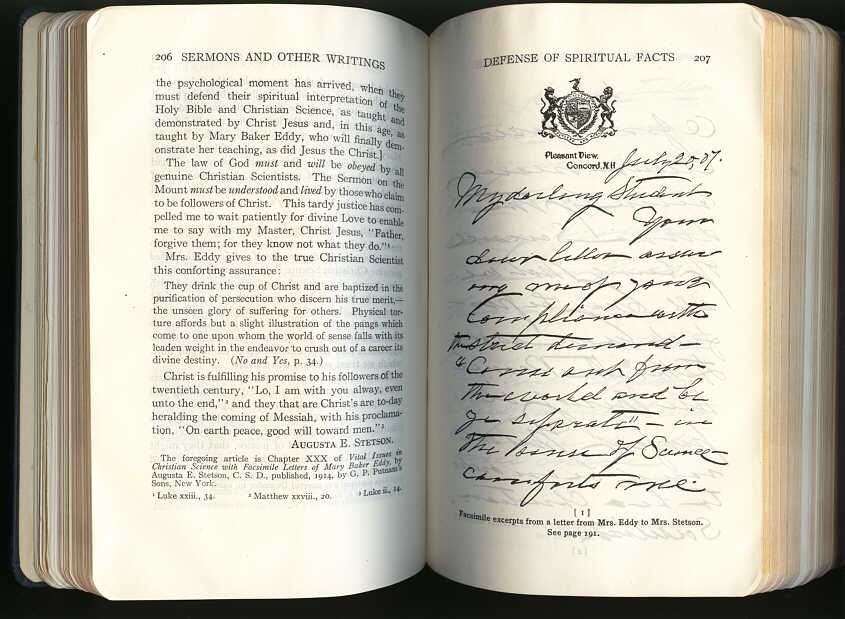 206 SERMONS AND OTHER WRITINGS
the psychological moment has arrived, when they
must defend their spiritual interpretation of the
Holy Bible and Christian Science, as taught and
demonstrated by Christ Jesus and, in this age, as
taught by Mary Baker Eddy, who will finally dem-
onstrate her teaching, as did Jesus the Christ.]
The law of God must and will be obeyed by all
genuine Christian Scientists. The Sermon on the
Mount must be understood and lived by those who claim
to be followers of Christ. This tardy justice has com-
pelled me to wait patiently for divine Love to enable
me to say with my Master, Christ Jesus, "Father,
forgive them; for they know not what they do."¹
Mrs. Eddy gives to the true Christian Scientist
this comforting assurance:
They drink the cup of Christ and are baptized in the
purification of persecution who discern his true merit,—
the unseen glory of suffering for others. Physical tor-
ture affords but a slight illustration of the pangs which
come to one upon whom the world of sense falls with its
leaden weight in the endeavor to crush out of a career its
divine destiny. (No and Yes, p. 34.)
Christ is fulfilling his promise to his followers of the
twentieth century, "Lo, I am with you alway, even
unto the end,"² and they that are Christ's are to-day
heralding the coming of Messiah, with his proclama-
tion, "On earth peace, good will toward men."³
AUGUSTA E. STETSON.
The foregoing article is Chapter XXX of Vital Issues in
Christian Science with Facsimile Letters of Mary Baker Eddy, by
Augusta E. Stetson, C. S. D., published, 1914, by G. P. Putnam's
Sons, New York.
¹ Luke xxiii., 34. ² Matthew xxviii., 20. ³ Luke ii., 14.
DEFENSE OF SPIRITUAL FACTS 207
Pleasant View,
Concord, N.H. July 20, 07.
My darling Student
Your
dear letter assur
ing me of your
compliance with
the strict demand –
"Come out from
the world and be
ye seperate" – in
the sense of Science
comforts me.
[1]
Facsimile excerpts from a letter from Mrs. Eddy to Mrs. Stetson.
See page 191.